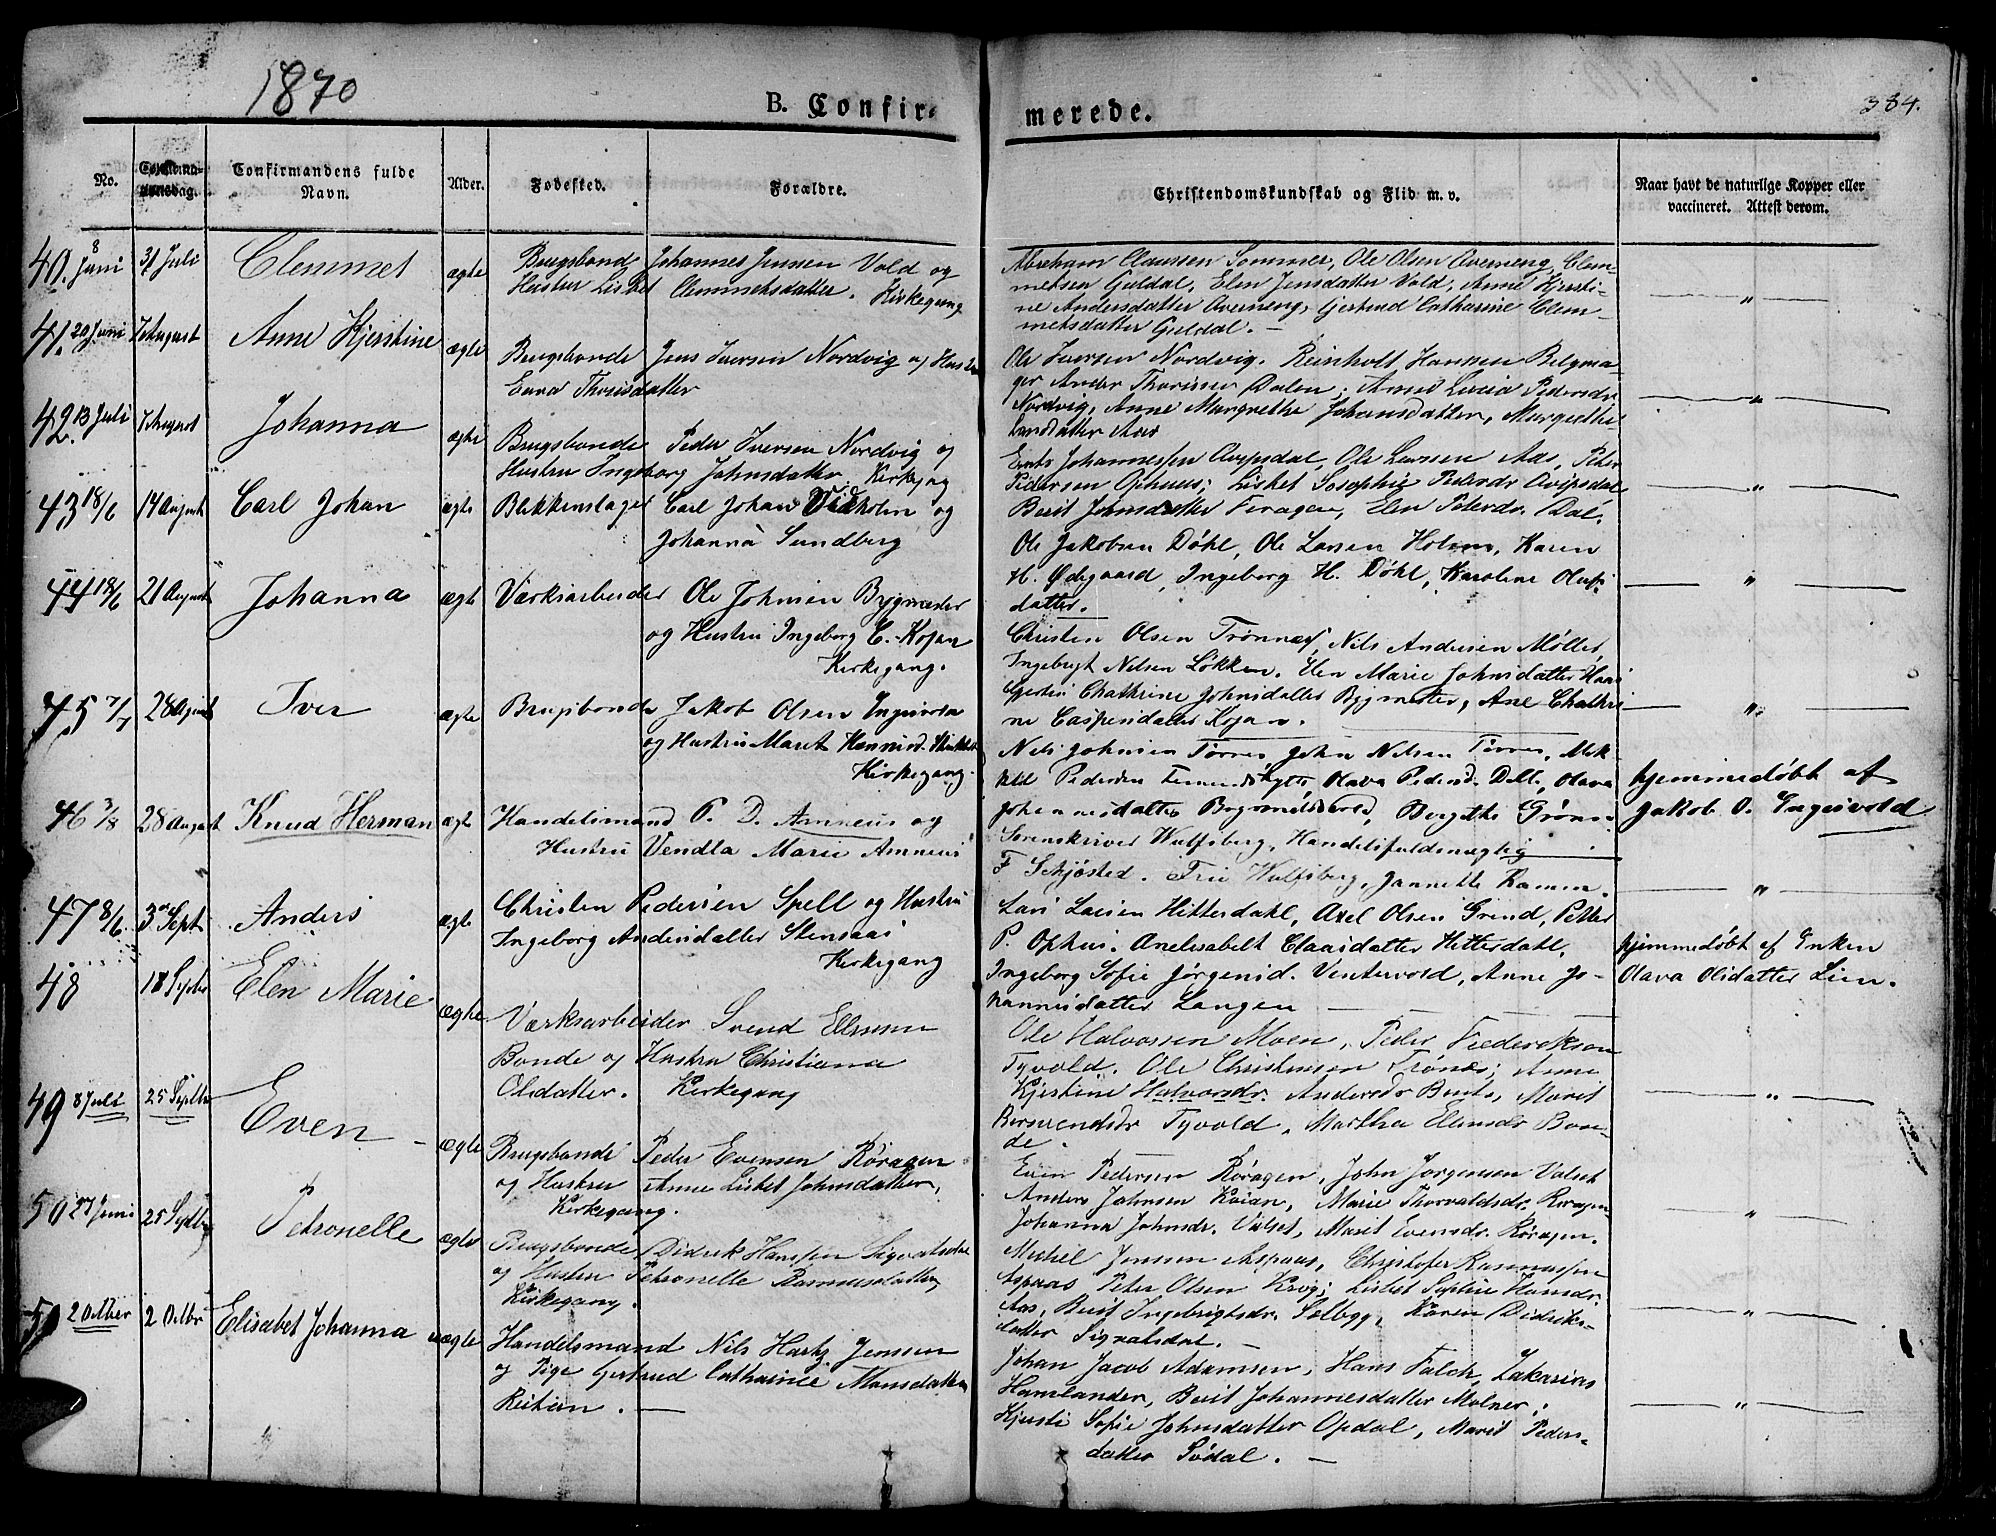 1870
B. Confirmerede.
384.
No.
Confirmandens fulde
Navn.
Alder.
Fødested.
Forældre.
Christendomskundskab og Flid m. v.
Naar havt de naturlige Kopper eller
vaccineret. Attest derom.
40. 8 Juni 31 Juli Clemmet ægte
Brugsbonde Johannes Jensen Vold og
Hustru Lisbet Clemmetsdatter. Kirkegang
Abraham Claussen Sommer, Ole Olsen Averneng, Clem-
metsen Guldal, Elen Jensdatter Vold, Anne Kjersti-
ne Andersdatter Overneng, Gjertrud Catharine Clem-
metsdatter Guldal. —
— " —
41. 20 Juni 7 August Anne Kjerstine ægte
Brugsbonde Jens Iversen Nordvig og Hustru
Thorisdatter
Ole Iversen Nordvig. Reinholt Hansen Belgma-
ger Anders Dalen; Anne Lucia Pedersdr
Nordvig, Anne Margrethe Johansdatter, Margrethe
Larsdatter Aas
— " —
42. 13 Juli 7 August Johanna ægte
Brugsbonde Peder Iversen Nordvig og
Hustru Ingeborg Johnsdatter Kirkegang
Johannessen Ole Larsen Aas, Peter
Pedersen Ophuus; Lisbet
Berit Johnsdatter Feragen, Elen Petersdr Dal.
— " —
43 18/6 14 August Carl Johan ægte
Blikkenslager Carl Johan Vidholm og
Johanna Sundberg
Ole Jakobsen Døhl, Ole Larsen Holm, Karen
H. Ødegaard, Ingeborg H. Døhl, Karoline Olufs-
datter.
— " —
44 18/6 21 August Johanna ægte
Værksarbeider Ole Johnsen Bygmester
og Hustru Ingeborg C. Kojan
Kirkegang.
Christen Olsen Trønnes, Nils Andersen Møller,
Ingebrygt Nilsen Løkken. Elen Marie Johnsdatter Haas
Chathrine Johnsdatter Bygmester, Ane Chathri-
ne Caspersdatter Kojan.
— " —
45 7/7 28 August Iver ægte
Brugsbonde Jakob Olsen Ingevold
og Hustru Maret Hannisd.
Kirkegang.
Nils Johnsen Tørres, John Nilsen Tørres, Mik-
kel Pedersen Olava Pedersd. Olava
Johannesdatter Bergithe Grønn
hjemmedøbt af
Jakob O. Ingevold
46 3/8 28 August Knud Herman ægte
Handelsmand P. D. Amneus og
Hustru Vendla Marie Amneus
Sorenskriver Wulfsberg, Handelsfuldmægtig
F. Schjøsted. Fru Wulfsberg, Jannette Ramm.
— " —
47 8/6. 3 Sept Anders ægte
Christen Pedersen Spell og Hustru
Ingeborg Andersdatter Stensaas
Kirkegang
Lars Larsen Hitterdahl, Axel Olsen Grind, Petter
P. Ophus. Anelisabelt Claasdatter Hitterdahl.
Ingeborg Sofie Jørgensd. Vintervold, Anne Jo-
hannisdatter Langen —
hjemmedøbt af Enken
Olava Olsdatter Lien.
48 18 Septbr Elen Marie ægte
Værksarbeider Svend
Bonde og Hustru Christiana
Olsdatter. Kirkegang
Ole Halvorsen Moen, Peder Frederiksen
Tyvold. Ole Christensen Trønæs; Anne
Kjerstine Halvorsdr. Maret
Tyvold, Martha Bon-
de.
— " —
49 8 Juli 25 Septbr Even ægte
Brugsbonde Peder Evensen Røragen
og Hustru Anne Lisbet Johnsdatter,
Kirkegang.
Even Pedersen Røragen, John Jørgensen Valset
Anders Johnsen Marie Thorvaldsdr. Røragen
Johanna Johnsdr. Valset, Marit Evensdr. Røragen.
— " —
50 27 Juni 25 Septbr Petronelle ægte
Brugsbonde Didrik Hanssen
og Hustru Petronelle Rasmusdatter,
Kirkegang.
Michel Jensen Aspaas, Christofer Rasmussen
Aspaas Peter Olsen Krog; Lisbet Sophie Hansdr.
Aas, Berit Ingebrigtsdr. Solbyg, Karen Didriks-
datter —
— " —
51 2 Octber 2 Octbr Elisabet Johanna uægte
Handelsmand Nils Hartz Jenssen
og Pige Gertrud Cathrine Monsdatter
Reitern. —
Johan Jacob Adamsen, Hans Falch, Zakarias
Hamlander, Berit Johannesdatter Molner;
Kjersti Sofie Johnsdatter Opdal, Marit Peders-
datter Sødal. —
— " —